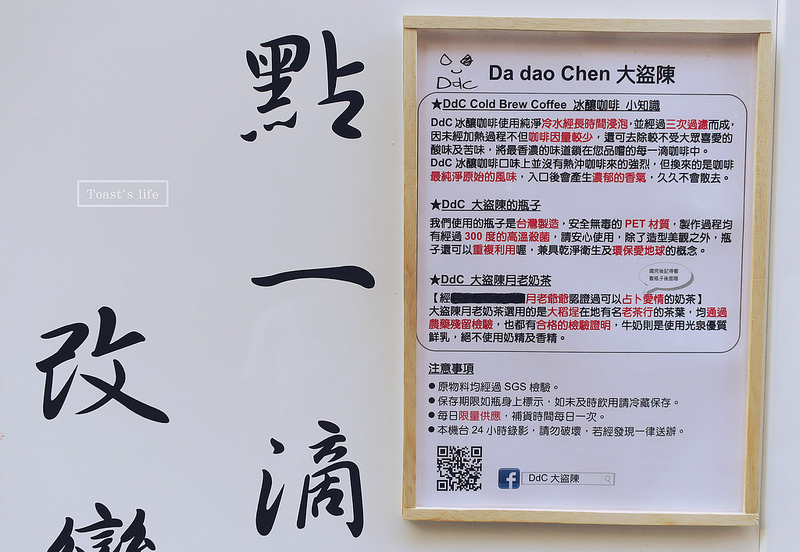 點一滴
改變
Toast's life
DdC
Da dao Chen 大盜陳
★DdC Cold Brew Coffee 冰釀咖啡 小知識
DdC 冰釀咖啡使用純淨冷水經長時間浸泡,並經過三次過濾而成,
因未經加熱過程不但咖啡因量較少,還可去除較不受大眾喜愛的
酸味及苦味,將最香濃的味道鎖在您品嚐的每一滴咖啡中。
DdC 冰釀咖啡口味上並沒有熱沖咖啡來的強烈,但換來的是咖啡
最純淨原始的風味,入口後會產生濃郁的香氣,久久不會散去。
★DdC 大盜陳的瓶子
我們使用的瓶子是台灣製造,安全無毒的 PET 材質,製作過程均
有經過 300 度的高溫殺菌,請安心使用,除了造型美觀之外,瓶
子還可以重複利用喔,兼具乾淨衛生及環保愛地球的概念。
★DdC 大盜陳月老奶茶
喝完後記得看
看瓶子後面唷
【經月老爺爺認證過可以占卜愛情的奶茶】
大盜陳月老奶茶選用的是大稻埕在地有名老茶行的茶葉,均通過
農藥殘留檢驗,也都有合格的檢驗證明,牛奶則是使用光泉優質
鮮乳,絕不使用奶精及香精。
注意事項
●原物料均經過 SGS 檢驗。
●保存期限如瓶身上標示,如未及時飲用請冷藏保存。
●每日限量供應,補貨時間每日一次。
●本機台 24 小時錄影,請勿破壞,若經發現一律送辦。
f DdC 大盜陳